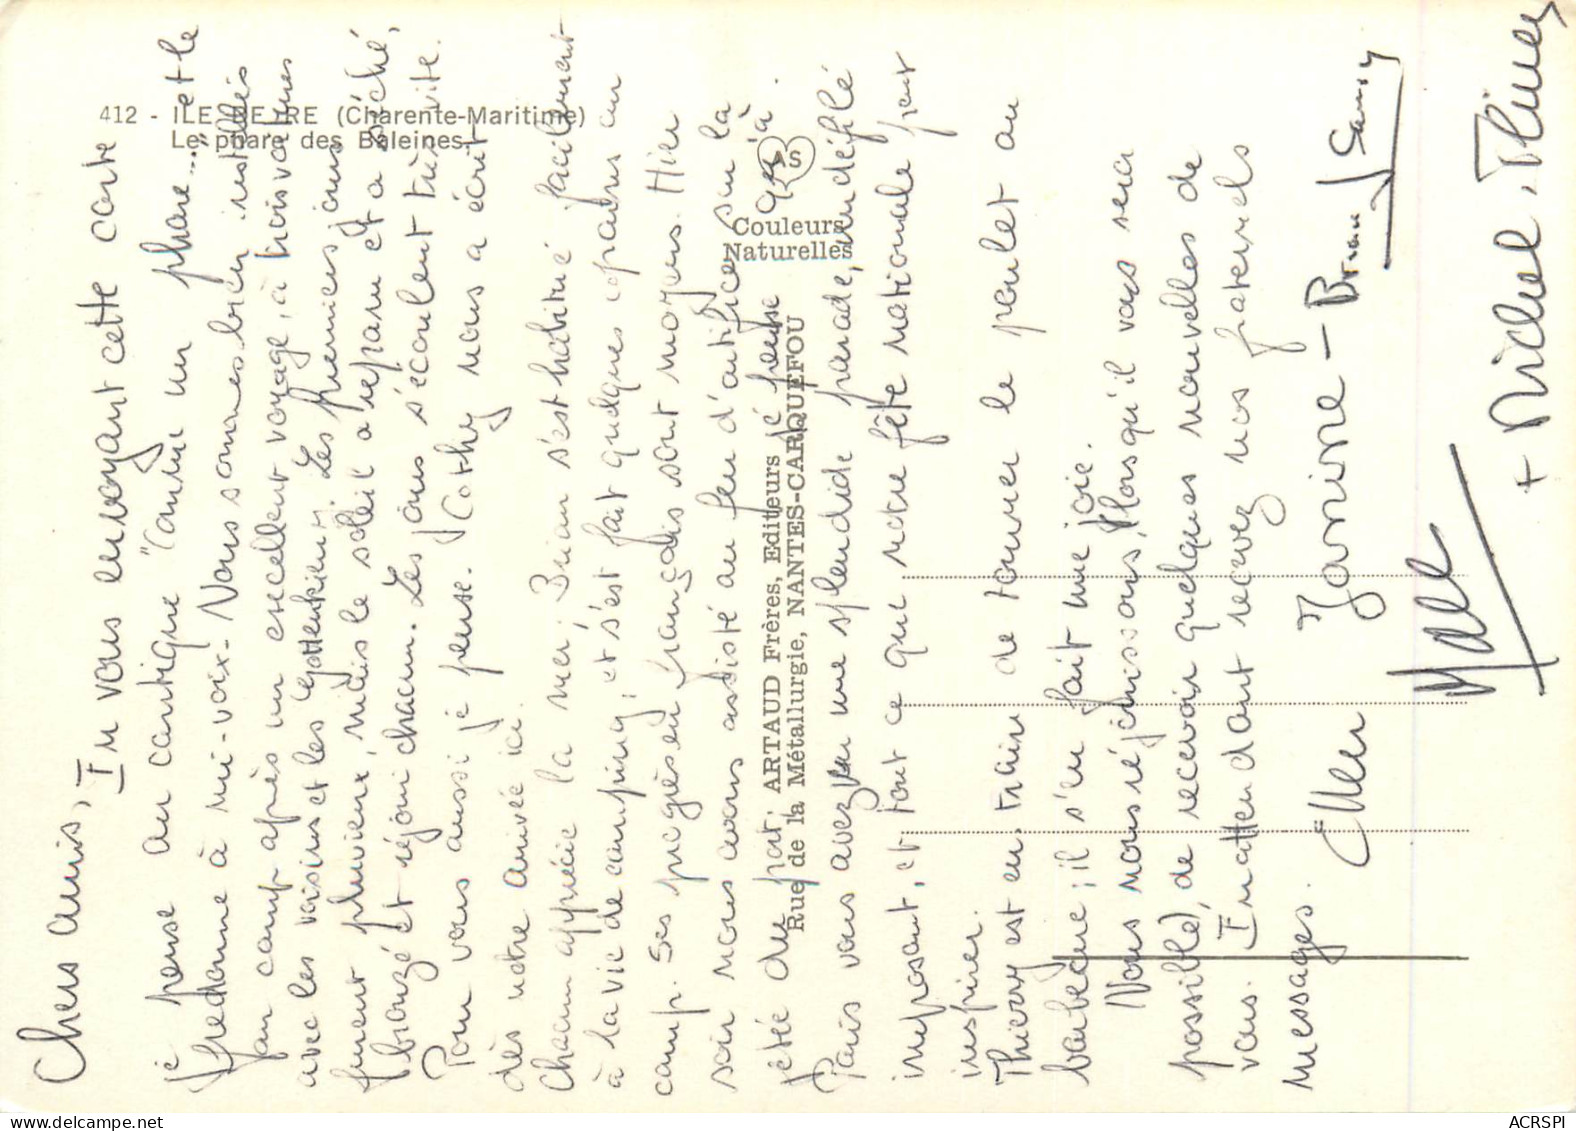 412 - ILE DE RE (Charente-Maritime)
Le phare des Baleines.
AS
Couleurs
Naturelles
ARTAUD Frères, Editeurs
Rue de la Métallurgie, NANTES-CARQUEFOU
Chers amis,
En vous envoyant cette carte
je pense au cantique "Comme un phare..." et le
fredonne à mi-voix. Nous sommes bien installés
au camp après un excellent voyage, à trois voitures
avec les voisins et les Gottenkieny. Les premiers jours
furent pluvieux, mais le soleil a reparu et a séché,
bronzé et réjoui chacun. Les jours s'écoulent très vite.
Pour vous aussi je pense. Cathy nous a écrit
dès notre arrivée ici.
Chacun apprécie la mer; Brian s'est habitué facilement
à la vie de camping, et s'est fait quelques copains au
camp. Ses progrès en français sont moyens. Hier
soir nous avons assisté au feu d'artifice sur la
jetée du port; je pense qu'à
Paris vous avez eu une splendide parade, un défilé
imposant, et tout ce que notre fête nationale peut
inspirer.
Thierry est en train de tourner le poulet au
barbecue; il s'en fait une joie.
Nous nous réjouissons, (lorsqu'il vous sera
possible), de recevoir quelques nouvelles de
vous. En attendant recevez nos fraternels
messages.
Janine - Brian
+ Michel,
ACRSPI